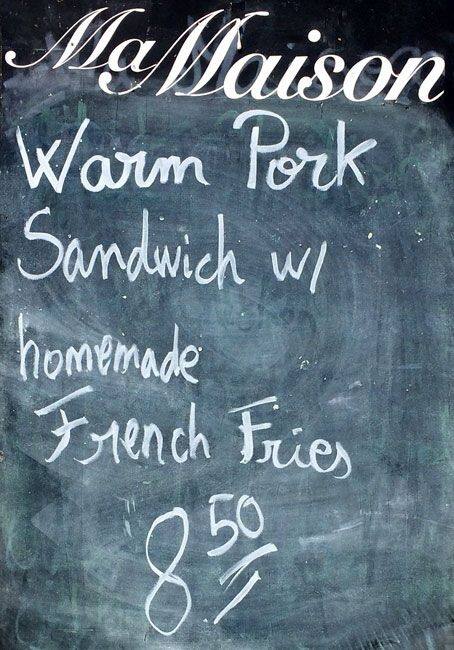 Ma Maison
Warm Pork
Sandwich w/
homemade
French Fries
8.50